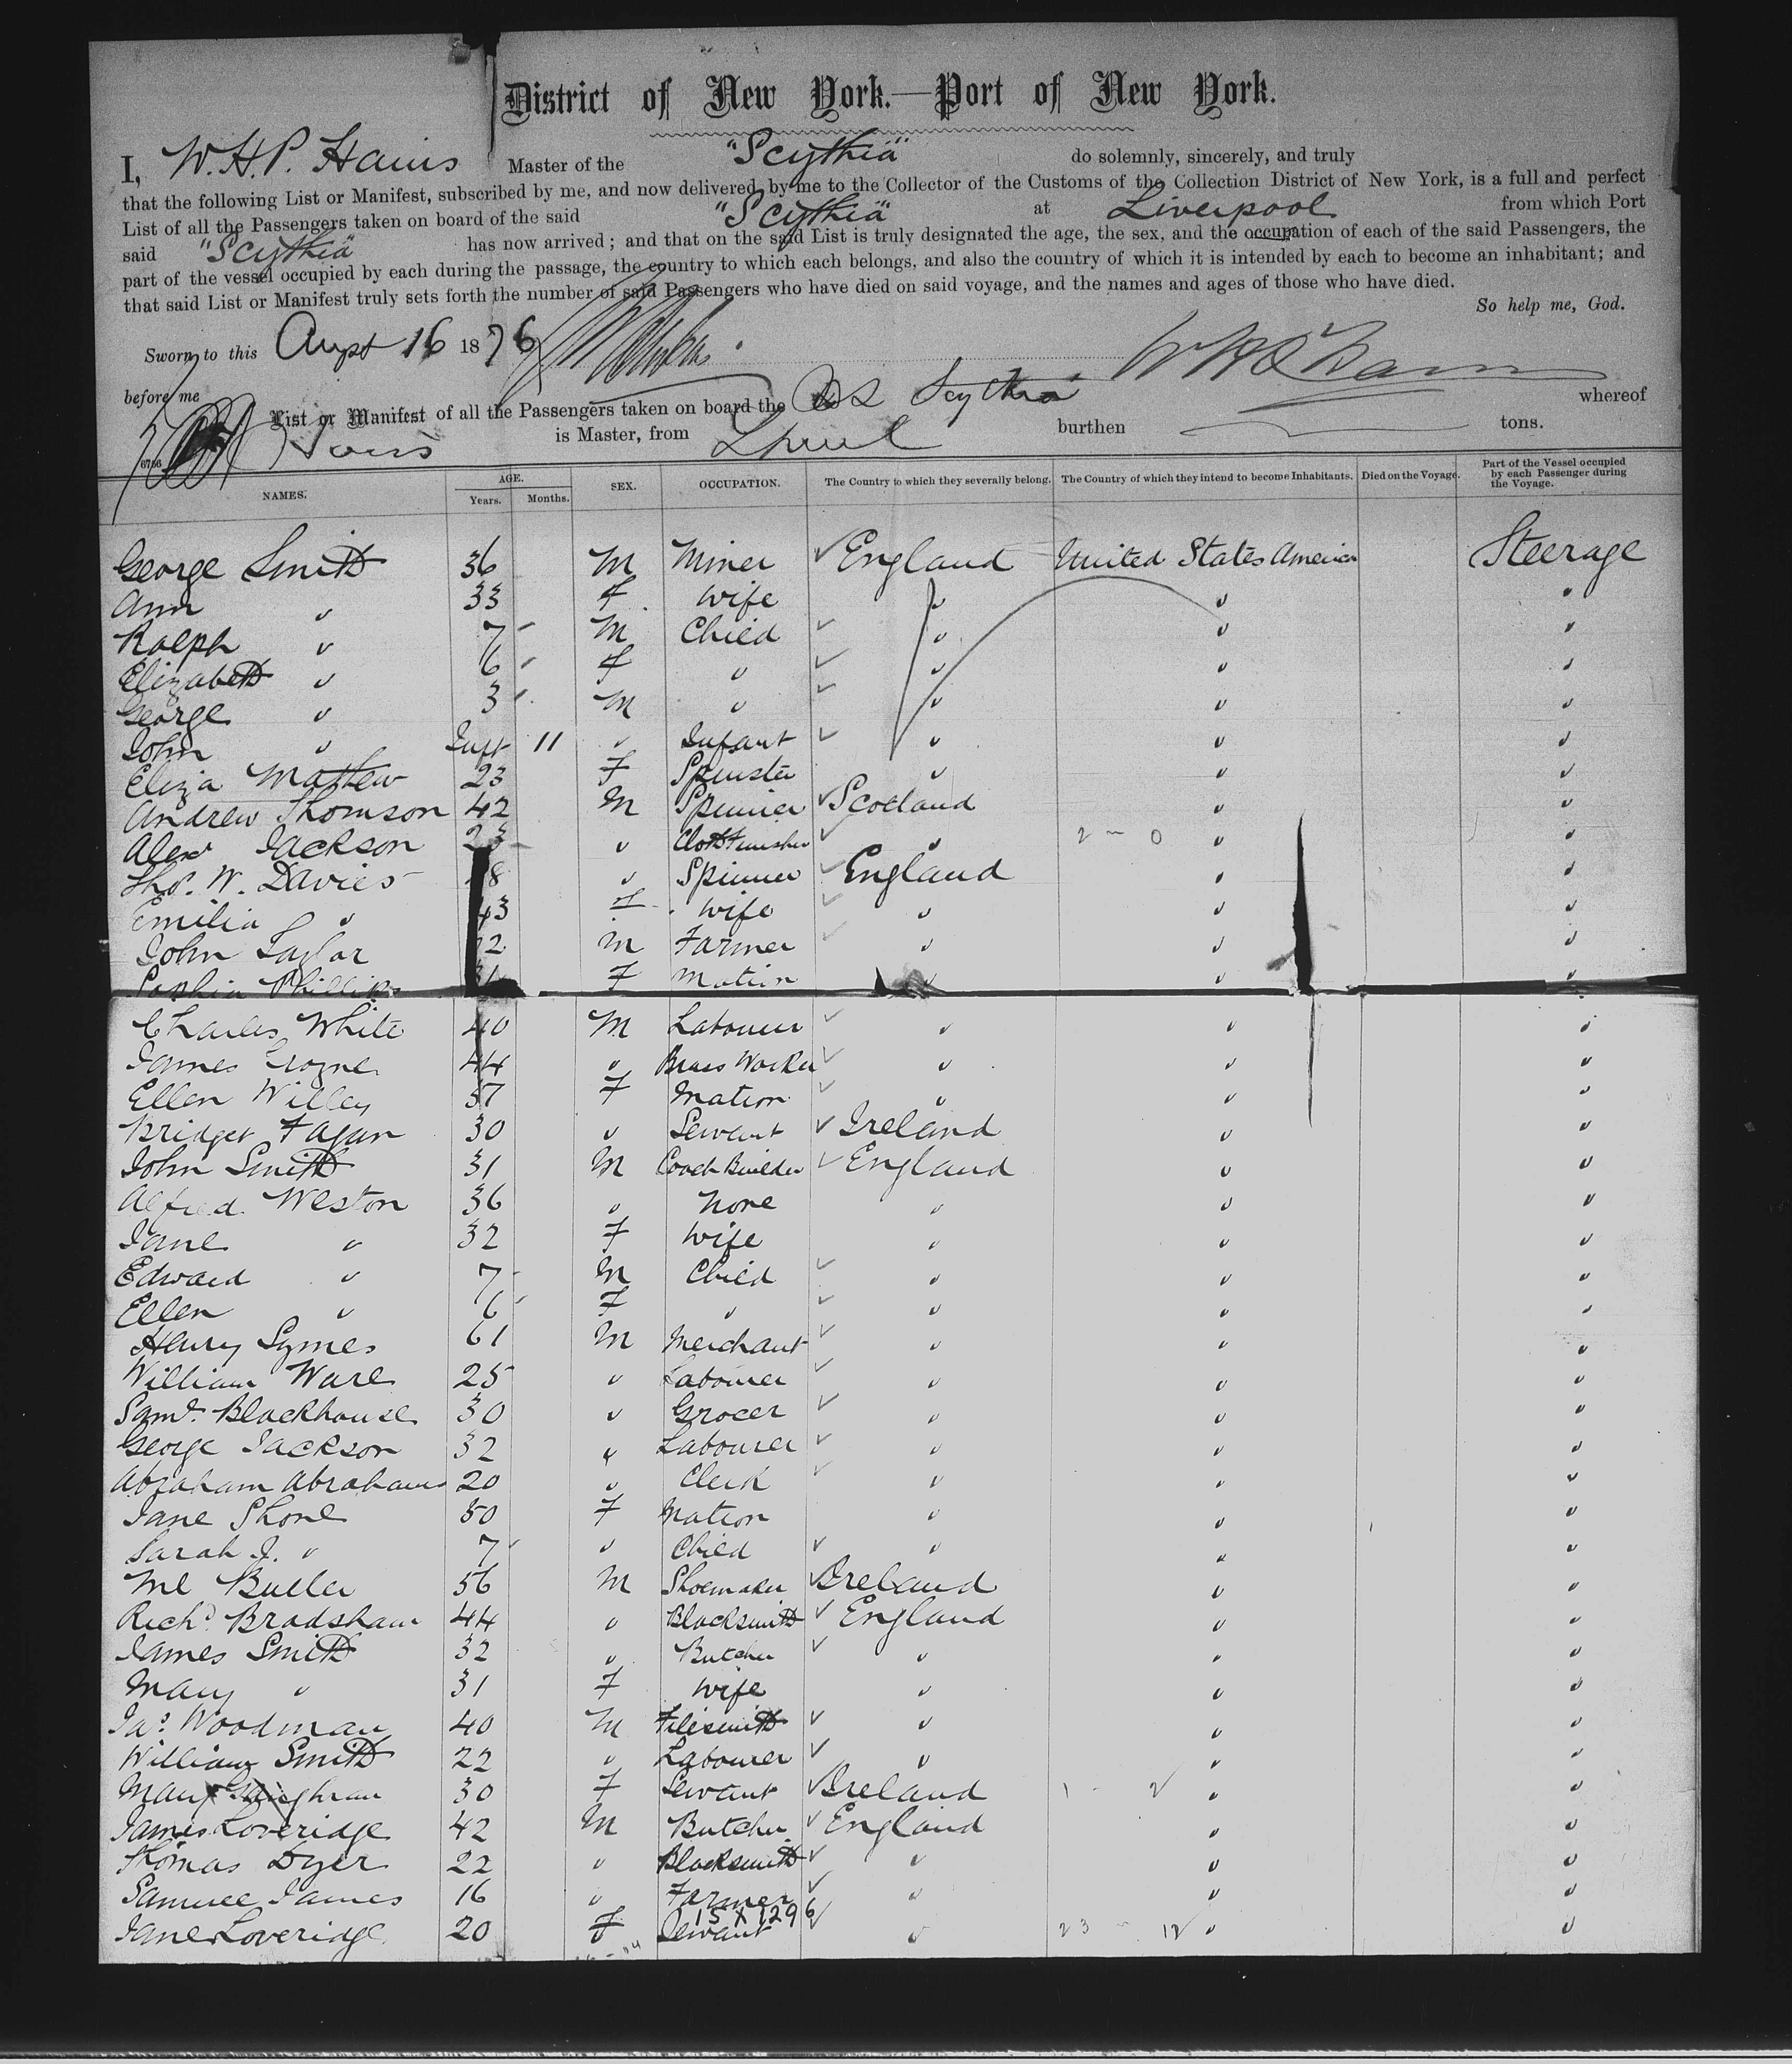 District of New York.—Port of New York.
I, W. H. P. Hains Master of the "Scythia" do solemnly, sincerely, and truly
that the following List or Manifest, subscribed by me, and now delivered by me to the Collector of the Customs of the Collection District of New York, is a full and perfect
List of all the Passengers taken on board of the said "Scythia" at Liverpool from which Port
said "Scythia" has now arrived; and that on the said List is truly designated the age, the sex, and the occupation of each of the said Passengers, the
part of the vessel occupied by each during the passage, the country to which each belongs, and also the country of which it is intended by each to become an inhabitant; and
that said List or Manifest truly sets forth the number of said Passengers who have died on said voyage, and the names and ages of those who have died.
So help me, God.
Sworn to this Augst 16 1876
before me
List or Manifest of all the Passengers taken on board the SS Scythia whereof
is Master, from Lpool burthen tons.
NAMES. AGE. Years. Months. SEX. OCCUPATION. The Country to which they severally belong. The Country of which they intend to become Inhabitants. Died on the Voyage. Part of the Vessel occupied by each Passenger during the Voyage.
George Smith 36 M Miner England United States America Steerage
Ann " 33 F Wife " " "
Ralph " 7 M Child " " "
Elizabeth " 6 F " " " "
George " 3 M " " " "
John " Inft 11 " Infant " " "
Eliza Mathew 23 F Spinster " " "
Andrew Thomson 42 M Spinner Scotland " "
Alexr Jackson 23 " Cloth Finisher " " "
Thos. W. Davies 8 " Spinner England " "
Emilia " 43 F Wife " " "
John Taylor 2 M Farmer " " "
Sophia Phillips 31 F Matron " " "
Charles White 40 M Labourer " " "
James 44 " Brass Worker " " "
Ellen Willey 57 F Matron " " "
Bridget Fagan 30 " Servant Ireland " "
John Smith 31 M Coach Builder England " "
Alfred Weston 36 " None " " "
Jane " 32 F Wife " " "
Edward " 7 M Child " " "
Ellen " 6 F " " " "
Henry Symes 61 M Merchant " " "
William Ware 25 " Labourer " " "
Saml. Blackhouse 30 " Grocer " " "
George Jackson 32 " Labourer " " "
Abraham Abrahams 20 " Clerk " " "
Jane Shone 50 F Matron " " "
Sarah J. " 7 " Child " " "
Ml Butler 56 M Shoemaker Ireland " "
Richd. Bradshaw 44 " Blacksmith England " "
James Smith 32 " Butcher " " "
Mary " 31 F Wife " " "
Jas. Woodman 40 M Filesmith " " "
William Smith 22 " Labourer " " "
Mary 30 F Servant Ireland " "
James Loveridge 42 M Butcher England " "
Thomas Dyer 22 " Blacksmith " " "
Samuel James 16 " Farmer " " "
15 X 1296
Jane Loveridge 20 F Servant " " "